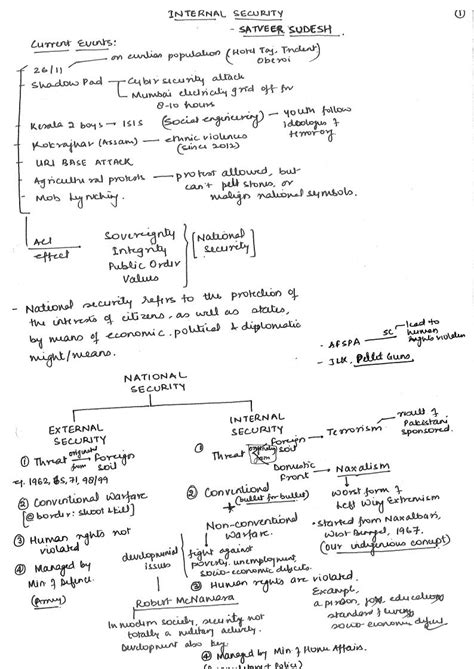 INTERNAL SECURITY
①
- SATVEER SUDESH
Current Events:
- 26/11 on civilian population (Hotel Taj, Trident Oberoi)
- Shadow Pad - Cyber security attack
- Mumbai electricity grid off for
8-10 hours
- Kerala 2 boys → ISIS (Social engineering) youth follow
ideologies of
terrorog
- Kokrajhar (Assam) - ethnic violences
(since 2012)
- URI BASE ATTACK
- Agricultural protests - protest allowed, but
can't pelt stones, or
malign national symbols.
- Mob Lynching.
ACT
effect
Sovereignty
Integrity
Public Order
Values
[National
Security]
- National security refers to the protection of
the interests of citizens, as well as states,
by means of economic, political & diplomatic
might/means.
- AFSPA SC lead to
human
rights violation
- J&K, Pellet Guns.
NATIONAL
SECURITY
EXTERNAL
SECURITY
① Threat originated from Foreign
soil
eg. 1962, 65, 71, 98/99
② Conventional Warfare
[@ border: shoot & kill]
③ Human rights not
violated
④ Managed by
Min. of Defence.
(Army)
INTERNAL
SECURITY
① Threat originates from
Foreign soil → Terrorism → result of
Pakistani
sponsored.
Domestic
Front → Naxalism
worst form of
Left Wing Extremism
• started from Naxalbari,
West Bengal, 1967.
(our indigenious concept)
② Conventional (bullet for bullet)
Non-conventional
Warfare.
developmental
issues
fight against
poverty, unemployment,
socio-economic defects.
③ Human rights are violated.
Example,
a person, for education,
standard of living
socio-economic
Robert McNamara
In modern society, security not
totally a military activity.
Development also key.
④ Managed by Min. of Home Affairs.
Policy)